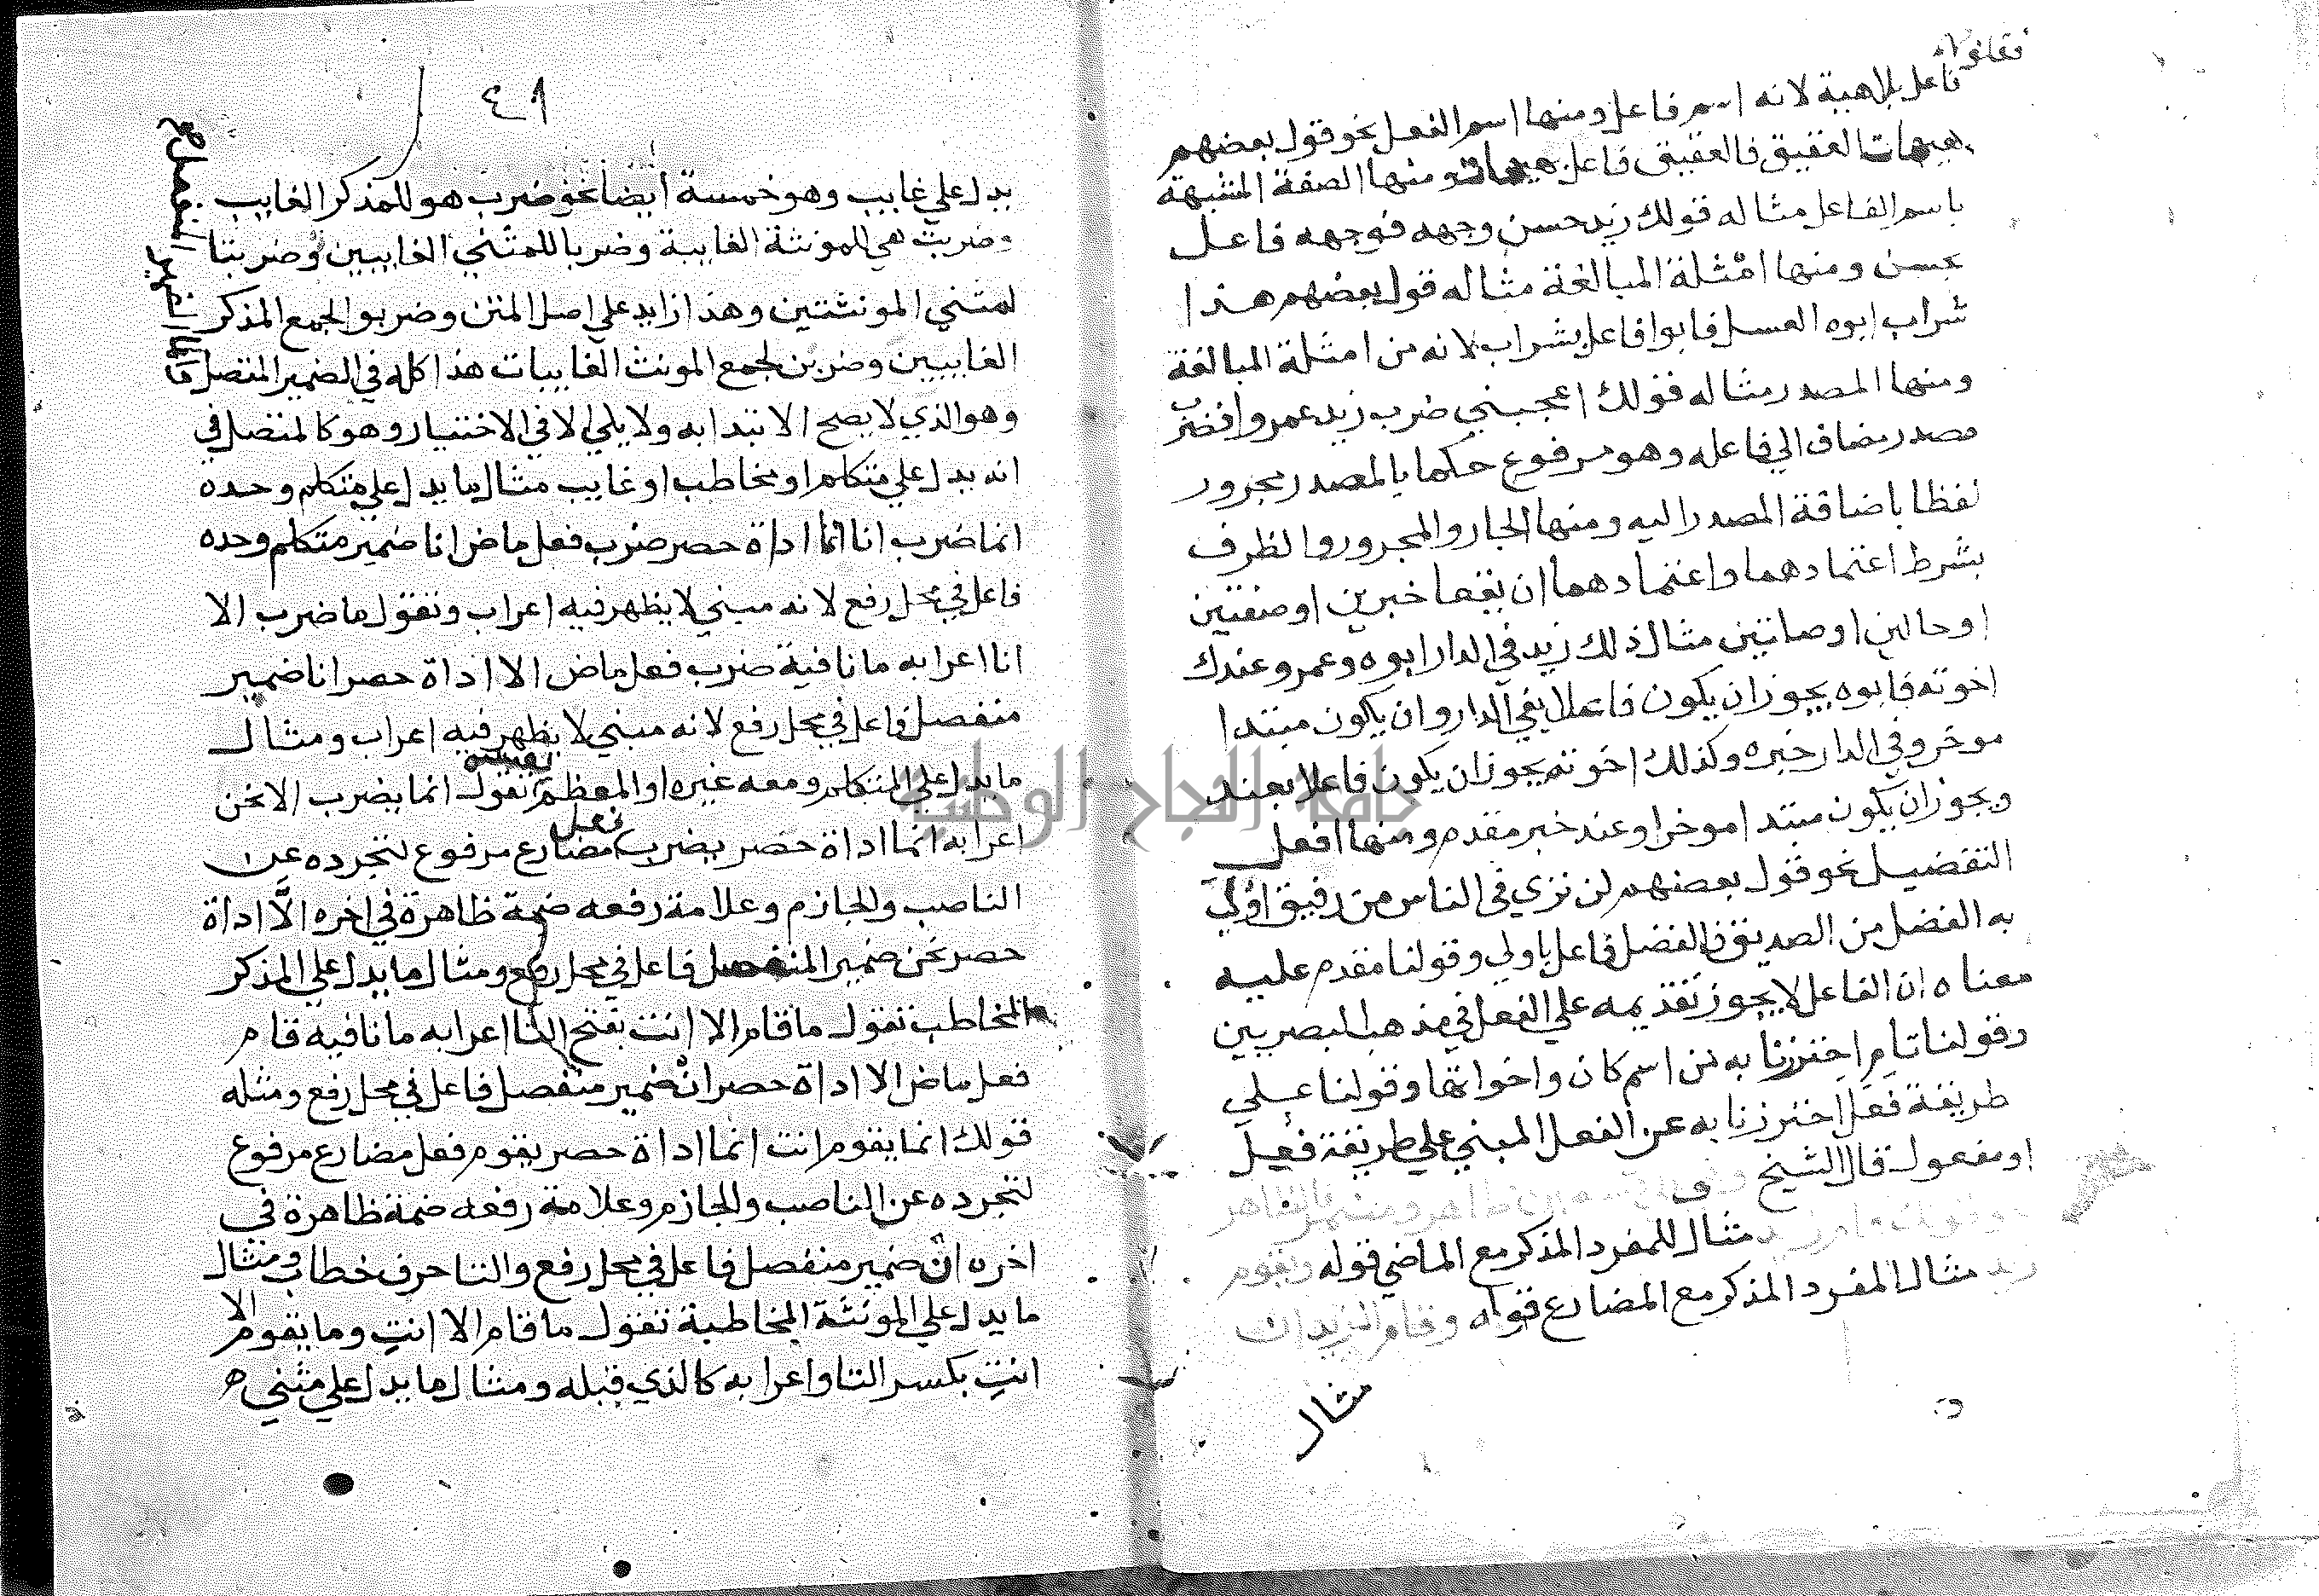 فقلنو
فاعل بلاهية لانه اسم فاعل ومنها اسم الفعل نحو قول بعضهم
هيهات العقيق فالعقيق فاعل هيهات ومنها الصفة المشبهة
باسم الفاعل مثاله قولك زيد حسن وجهه فوجهه فاعل
بحسن ومنها امثلة المبالغة مثاله قول بعضهم هذا
شراب ابوه العسل فابوا فاعل بشراب لانه من امثلة المبالغة
ومنها المصدر مثاله قولك اعجبني ضرب زيد عمروا فضرب
مصدر مضاف الي فاعله وهو مرفوع حكما بالمصدر مجرور
لفظا باضافة المصدر اليه ومنها الجار والمجرور والظرف
بشرط اعتمادهما واعتمادهما ان يقعا خبرين او صفتين
او حالين او صلتين مثال ذلك زيد في الدار ابوه وعمرو عندك
اخوته فابوه يجوز ان يكون فاعلا بفي الدار وان يكون مبتدا
موخر وفي الدار خبره وكذلك اخوته يجوز ان يكون فاعلا بعند
ويجوز ان يكون مبتدا موخرا وعند خبر مقدم ومنها افعل
التفضيل نحو قول بعضهم لن تري في الناس من رفيق اولي
به الفضل من الصديق فالفضل فاعل باولي وقولنا مقدم عليه
معناه ان الفاعل لا يجوز تقديمه علي الفعل في مذهب البصريين
وقولنا تام احترزنا به من اسم كان واخواتها وقولنا علي
طريقة فعل احترزنا به عن الفعل المبني علي طريقة فعيل
او مفعول قال الشيخ وهو علي قسمين ظاهر ومضمر فالظاهر
نحو قولك قام زيد مثال للمفرد المذكر مع الماضي قوله ويقوم
زيد مثال المفرد المذكر مع المضارع قوله وقام الزيدان
مثال
٤٩
يدل علي غايب وهو خمسة ايضا نحو ضرب هو للمذكر الغايب
وضربت هي للمونثة الغايبة وضربا للمثني الغايبين وضربتا
لمثني المونثتين وهذا زايد علي اصل المتن وضربو الجمع المذكر
الغايبين وضربن لجمع المونث الغايبات هذا كله في الضمير المتصل
واما الضمير المنفصل
وهو الذي لا يصح الابتدا به ولا يلي الا في الاختيار وهو كالمتصل في
انه يدل علي متكلم او مخاطب او غايب مثال ما يدل علي متكلم وحده
انما ضرب انا انما اداة حصر ضرب فعل ماض انا ضمير متكلم وحده
فاعل في محل رفع لانه مبني لا يظهر فيه اعراب وتقول ما ضرب الا
انا اعرابه ما نافية ضرب فعل ماض الا اداة حصر انا ضمير
منفصل فاعل في محل رفع لانه مبني لا يظهر فيه اعراب ومثال
ما يدل علي المتكلم ومعه غيره او المعظم نفسه تقول انما يضرب الا نحن
اعرابه انما اداة حصر يضرب فعل مضارع مرفوع لتجرده عن
الناصب والجازم وعلامة رفعه ضمة ظاهرة في اخره الا اداة
حصر نحن ضمير المنفصل فاعل في محل رفع ومثال ما يدل علي المذكر
المخاطب تقول ما قام الا انت بفتح التا اعرابه ما نافيه قام
فعل ماض الا اداة حصر ان ضمير منفصل فاعل في محل رفع ومثله
قولك انما يقوم انت انما اداة حصر يقوم فعل مضارع مرفوع
لتجرده عن الناصب والجازم وعلامة رفعه ضمة ظاهرة في
اخره ان ضمير منفصل فاعل في محل رفع والتا حرف خطاب ومثال
ما يدل علي المونثة المخاطبة تقول ما قام الا انت وما يقوم الا
انت بكسر التا واعرابه كالذي قبله ومثال ما يدل علي مثني
جامعة النجاح الوطنية